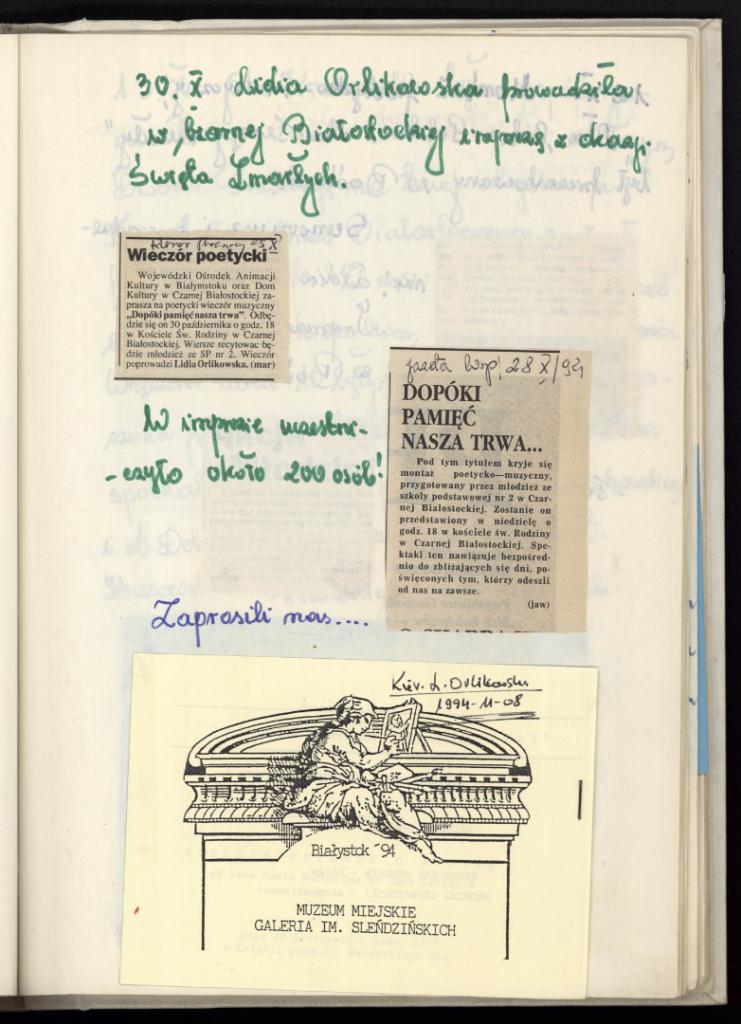 30. X Lidia Orlikowska prowadziła
w Czarnej Białostockiej imprezę z okazji
Święta Zmarłych.
Kurier Poranny 25 X
Wieczór poetycki
Wojewódzki Ośrodek Animacji
Kultury w Białymstoku oraz Dom
Kultury w Czarnej Białostockiej za-
prasza na poetycki wieczór muzyczny
„Dopóki pamięć nasza trwa". Odbę-
dzie się on 30 października o godz. 18
w Kościele Św. Rodziny w Czarnej
Białostockiej. Wiersze recytować bę-
dzie młodzież ze SP nr 2. Wieczór
poprowadzi Lidia Orlikowska. (mar)
W imprezie uczestni-
-czyło około 200 osób!
gazeta Wsp. 28 X/94
DOPÓKI
PAMIĘĆ
NASZA TRWA...
Pod tym tytułem kryje się
montaż poetycko—muzyczny,
przygotowany przez młodzież ze
szkoły podstawowej nr 2 w Czar-
nej Białostockiej. Zostanie on
przedstawiony w niedzielę o
godz. 18 w kościele św. Rodziny
w Czarnej Białostockiej. Spe-
ktakl ten nawiązuje bezpośred-
nio do zbliżających się dni, po-
święconych tym, którzy odeszli
od nas na zawsze.
(jaw)
Zaprosili nas....
Kier. L. Orlikowska
1994-11-08
Białystok '94
MUZEUM MIEJSKIE
GALERIA IM. SLEŃDZIŃSKICH